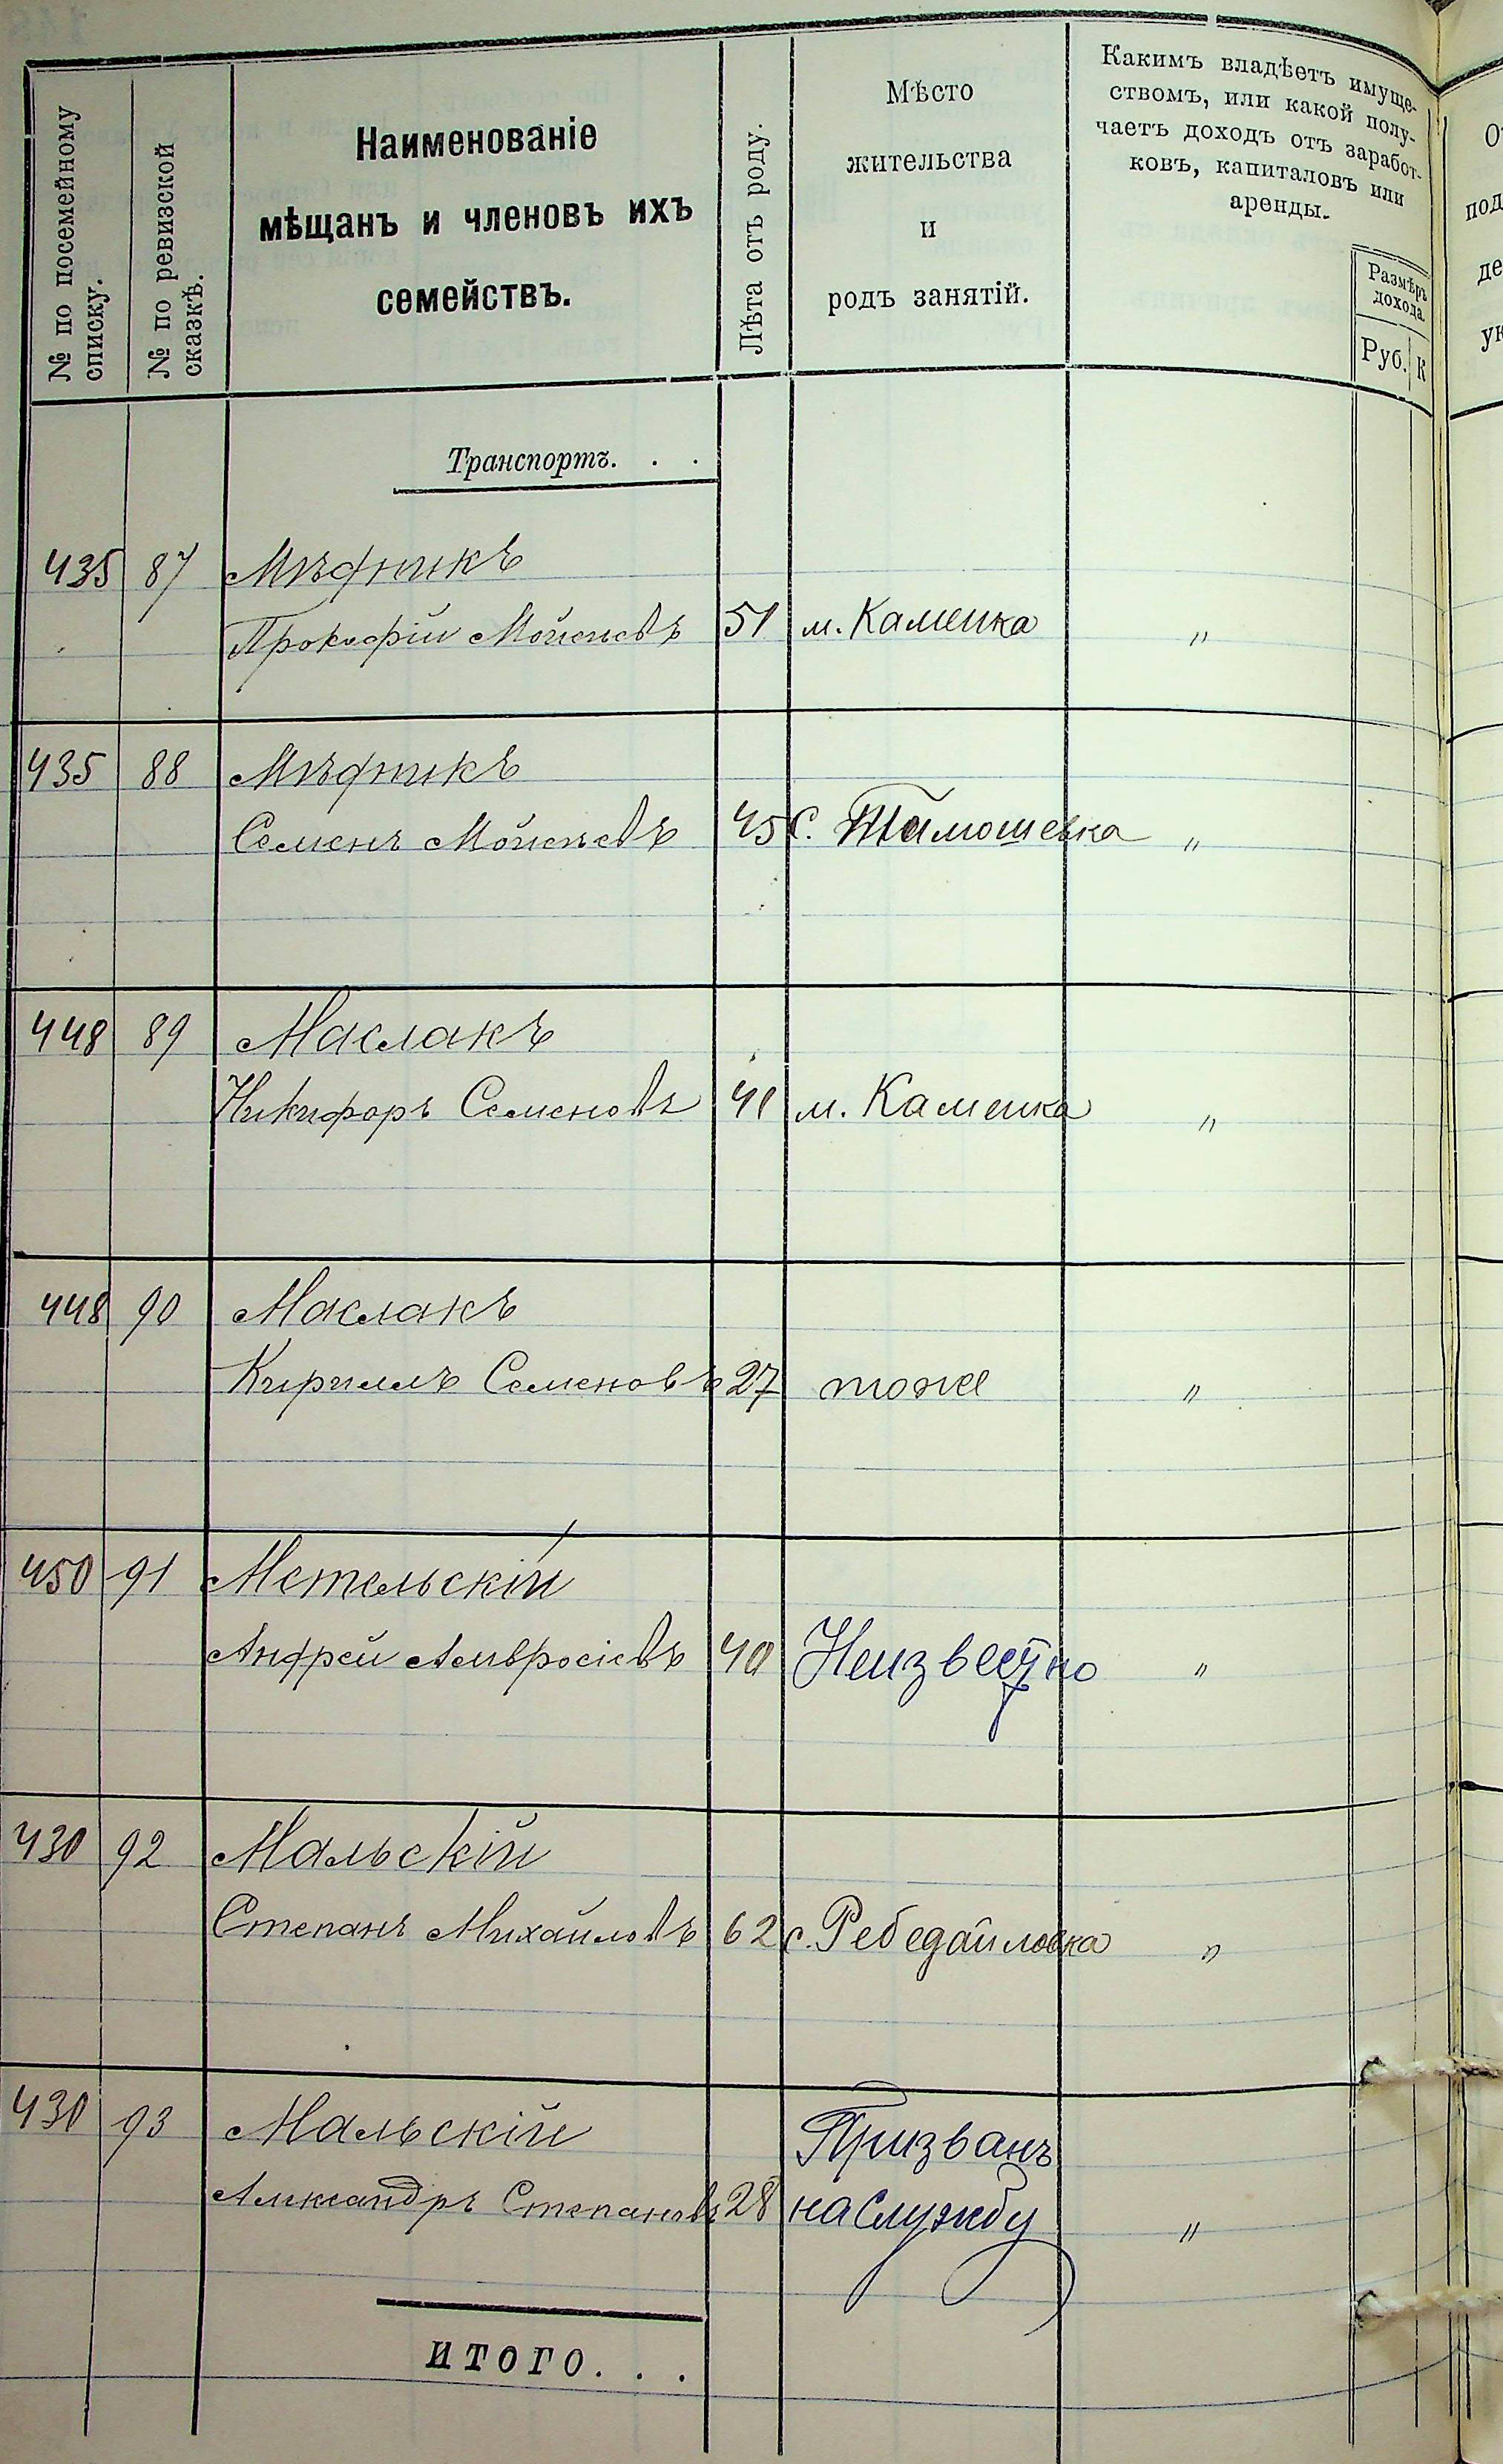 № по посемейному
списку.
№ по ревизской
сказкѣ.
Наименованіе
мѣщанъ и членовъ ихъ
семействъ.
Лѣта отъ роду.
Мѣсто
жительства
и
родъ занятій.
Какимъ владѣетъ имуще-
ствомъ, или какой полу-
чаетъ доходъ отъ заработ-
ковъ, капиталовъ или
аренды.
Размѣръ
дохода.
Руб. К
Транспортъ. . .
435 87 Мѣдникъ
Прокофій Мойсеевъ 51 м. Каменка "
435 88 Мѣдникъ
Семенъ Мойсеевъ 45 с. Тимошевка "
448 89 Маслакъ
Никифоръ Семеновъ 41 м. Каменка "
448 90 Маслакъ
Кириллъ Семеновъ 27 тоже "
450 91 Метельскій
Андрей Амвросіевъ 40 Неизвестно "
430 92 Мальскій
Степанъ Михайловъ 62 с. Ребедайловка "
430 93 Мальскій Призванъ
Александръ Степановъ 28 на службу "
ИТОГО. . .